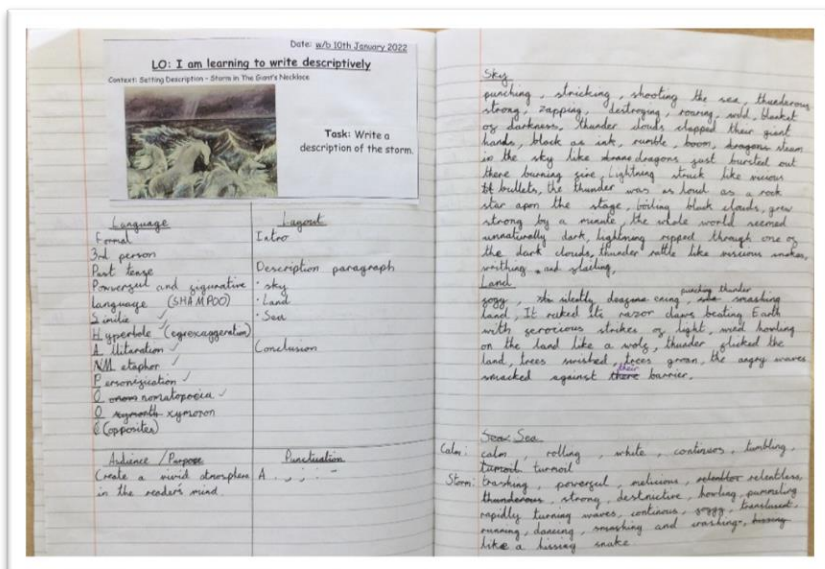 Date: w/b 10th January 2022
LO: I am learning to write descriptively
Context: Setting Description – Storm in The Giant's Necklace
Task: Write a
description of the storm.
Language
Formal
3rd person
Past tense
Powerful and figurative
language (SHAMPOO)
Similie ✓
Hyperbole (egroxaggeration)
Alliteration ✓
Metaphor ✓
Personification ✓
Onomatopoeia ✓
O xymoron
(opposites)
Layout
Intro
Description paragraph
• sky
• Land
• Sea
Conclusion
Audience / Purpose
Create a vivid atmosphere
in the reader's mind
Punctuation
A . , ; : -
Sky
punching, stricking, shooting the sea, thunderous
strong, zapping, destroying, roaring, wild, blanket
of darkness, thunder clouds clapped their giant
hands, black as ink, rumble, boom, dragons steam
in the sky like dragons just bursted out
there burning fire, Lightning struck like vicious
bullets, the thunder was as loud as a rock
star apon the stage, boiling black clouds, grew
strong by a minute, the whole world seemed
unnaturally dark, lightning ripped through one of
the dark clouds, thunder rattle like viscious snakes,
writhing and
Land
punching thunder
foggy, smashing
land, It raked its razor claws beating Earth
with ferocious strikes of light, wind howling
on the land like a wolf, thunder flicked the
land, trees swished, trees groan, the angry waves
smacked against their barrier.
Sea
Calm: calm, rolling, white, continues, tumbling,
turmoil
Storm: trashing, powerful, malicious, relentless
thunderous, strong, destructive, howling, pummeling
rapidly turning waves, continous, foggy, translucent,
running, dancing, smashing and crashing, hissing
like a hissing snake